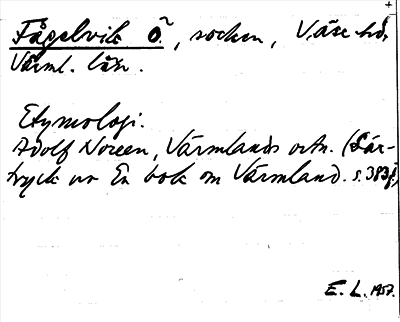 Fågelvik Ö̃., socken, Väse hd,
Värml. län.
Etymologi.
Adolf Noreen, Värmlands ortn. (Sär-
tryck ur En bok om Värmland. s. 383f.)
E. L. 1957.